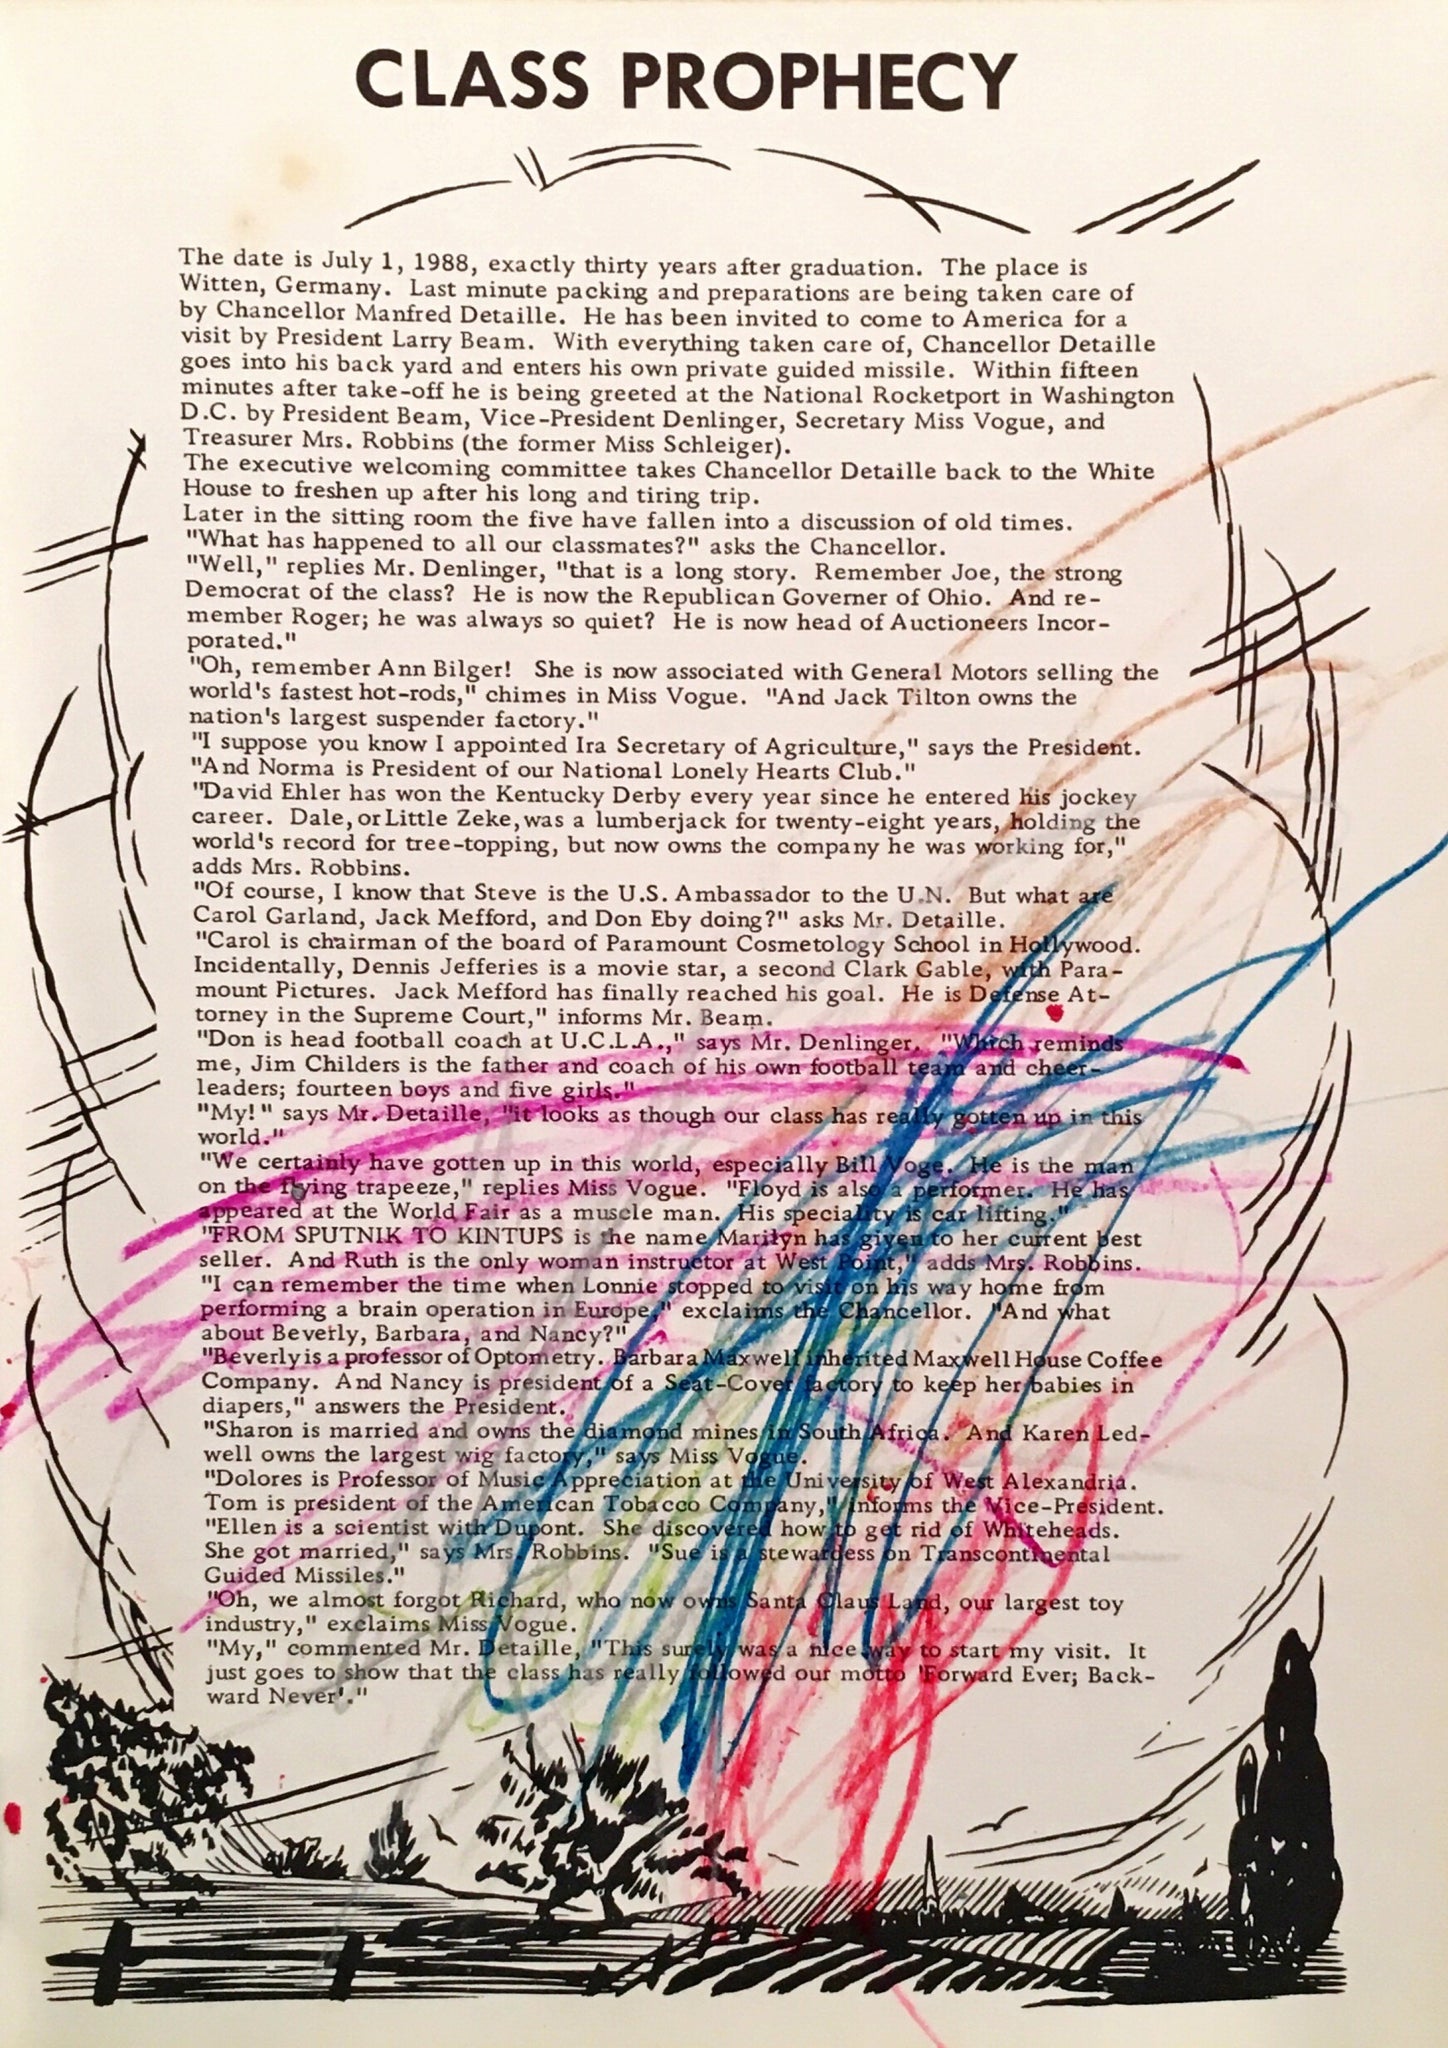 CLASS PROPHECY
The date is July 1, 1988, exactly thirty years after graduation. The place is
Witten, Germany. Last minute packing and preparations are being taken care of
by Chancellor Manfred Detaille. He has been invited to come to America for a
visit by President Larry Beam. With everything taken care of, Chancellor Detaille
goes into his back yard and enters his own private guided missile. Within fifteen
minutes after take-off he is being greeted at the National Rocketport in Washington
D.C. by President Beam, Vice-President Denlinger, Secretary Miss Vogue, and
Treasurer Mrs. Robbins (the former Miss Schleiger).
The executive welcoming committee takes Chancellor Detaille back to the White
House to freshen up after his long and tiring trip.
Later in the sitting room the five have fallen into a discussion of old times.
"What has happened to all our classmates?" asks the Chancellor.
"Well," replies Mr. Denlinger, "that is a long story. Remember Joe, the strong
Democrat of the class? He is now the Republican Governer of Ohio. And re-
member Roger; he was always so quiet? He is now head of Auctioneers Incor-
porated."
"Oh, remember Ann Bilger! She is now associated with General Motors selling the
world's fastest hot-rods," chimes in Miss Vogue. "And Jack Tilton owns the
nation's largest suspender factory."
"I suppose you know I appointed Ira Secretary of Agriculture," says the President.
"And Norma is President of our National Lonely Hearts Club."
"David Ehler has won the Kentucky Derby every year since he entered his jockey
career. Dale, or Little Zeke, was a lumberjack for twenty-eight years, holding the
world's record for tree-topping, but now owns the company he was working for,"
adds Mrs. Robbins.
"Of course, I know that Steve is the U.S. Ambassador to the U.N. But what are
Carol Garland, Jack Mefford, and Don Eby doing?" asks Mr. Detaille.
"Carol is chairman of the board of Paramount Cosmetology School in Hollywood.
Incidentally, Dennis Jefferies is a movie star, a second Clark Gable, with Para-
mount Pictures. Jack Mefford has finally reached his goal. He is Defense At-
torney in the Supreme Court," informs Mr. Beam.
"Don is head football coach at U.C.L.A.," says Mr. Denlinger. "Which reminds
me, Jim Childers is the father and coach of his own football team and cheer-
leaders; fourteen boys and five girls."
"My!" says Mr. Detaille, "it looks as though our class has really gotten up in this
world."
"We certainly have gotten up in this world, especially Bill Voge. He is the man
on the flying trapeeze," replies Miss Vogue. "Floyd is also a performer. He has
appeared at the World Fair as a muscle man. His speciality is car lifting."
"FROM SPUTNIK TO KINTUPS is the name Marilyn has given to her current best
seller. And Ruth is the only woman instructor at West Point," adds Mrs. Robbins.
"I can remember the time when Lonnie stopped to visit on his way home from
performing a brain operation in Europe," exclaims the Chancellor. "And what
about Beverly, Barbara, and Nancy?"
"Beverly is a professor of Optometry. Barbara Maxwell inherited Maxwell House Coffee
Company. And Nancy is president of a Seat-Cover factory to keep her babies in
diapers," answers the President.
"Sharon is married and owns the diamond mines in South Africa. And Karen Led-
well owns the largest wig factory," says Miss Vogue.
"Dolores is Professor of Music Appreciation at the University of West Alexandria.
Tom is president of the American Tobacco Company," informs the Vice-President.
"Ellen is a scientist with Dupont. She discovered how to get rid of Whiteheads.
She got married," says Mrs. Robbins. "Sue is a stewardess on Transcontinental
Guided Missiles."
"Oh, we almost forgot Richard, who now owns Santa Claus Land, our largest toy
industry," exclaims Miss Vogue.
"My," commented Mr. Detaille, "This surely was a nice way to start my visit. It
just goes to show that the class has really followed our motto 'Forward Ever; Back-
ward Never'."